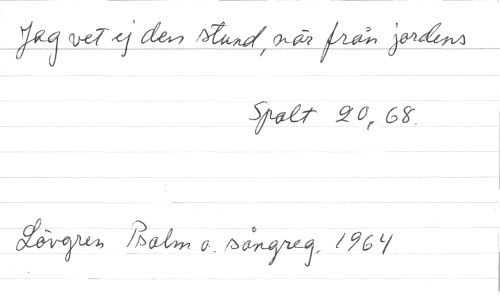 Jag vet ej den stund, när från jordens
Spalt 20, 68.
Lövgren Psalm o. sångreg. 1964